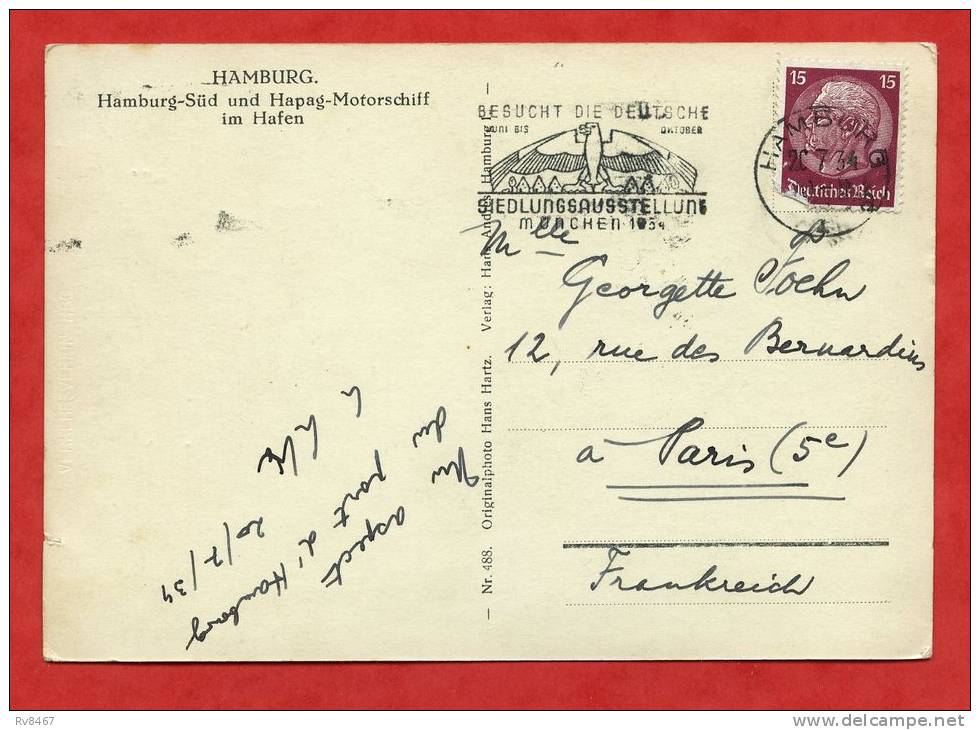 HAMBURG.
Hamburg-Süd und Hapag-Motorschiff
im Hafen
BESUCHT DIE DEUTSCHE
JUNI BIS OKTOBER
SIEDLUNGSAUSSTELLUNG
MÜNCHEN 1934
15 15
Deutsches Reich
HAMBURG
20.7.34
Mlle
Georgette
12, rue des Bernardins
à Paris (5e)
Frankreich
Nr. 488. Originalphoto Hans Hartz. Verlag: Hans Andres, Hamburg 1
aspect
du
port d'Hamburg
20/7/34
Rv8467